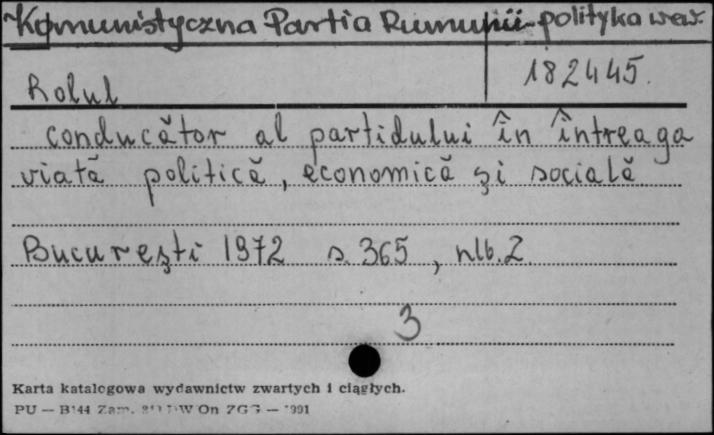 Komunistyczna Partia Rumunii - polityka wew.
182445.
Rolul
conducător al partidului în întreaga
viată politică, economică și socială
București 1972 s. 365, nlb. 2
3
Karta katalogowa wydawnictw zwartych i ciągłych.
PU — B144 Zam. DW On ZGG —